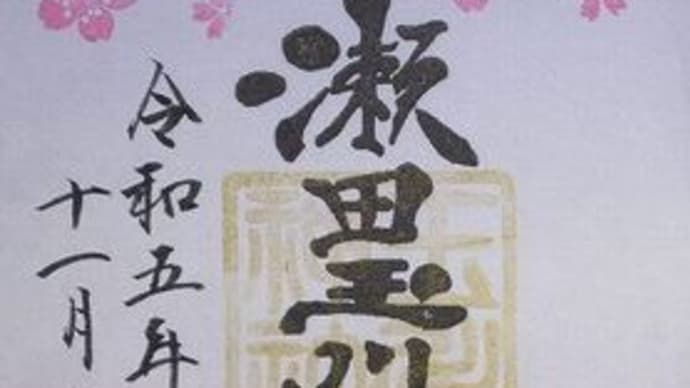 瀬田玉川
令和五年
十一月